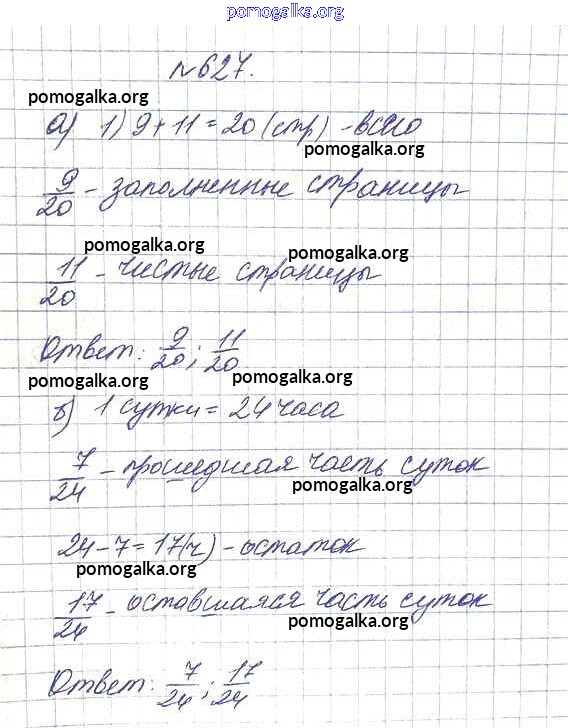 pomogalka.org
№627.
pomogalka.org
а) 1) 9+11=20 (стр) - всего
pomogalka.org
9/20 - заполненные страницы
pomogalka.org pomogalka.org
11/20 - чистые страницы
Ответ: 9/20; 11/20
pomogalka.org pomogalka.org
б) 1 сутки = 24 часа
7/24 - прошедшая часть суток
pomogalka.org
24-7=17(ч) - остаток
pomogalka.org
17/24 - оставшаяся часть суток
pomogalka.org
Ответ: 7/24; 17/24